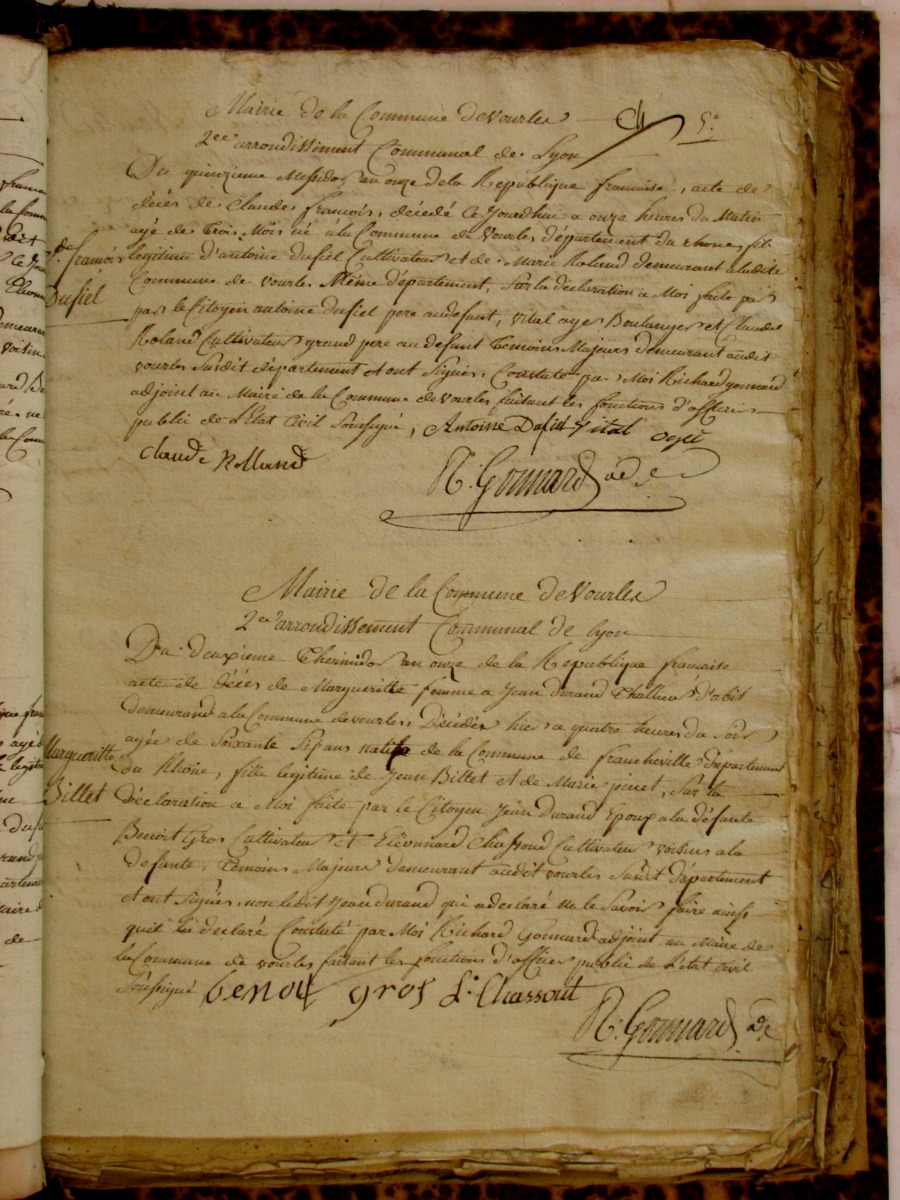 Mairie de la Commune de Vourles
5.e
2.eme arrondissement Communal de Lyon
Du quinzieme Messidor an onze de la Republique francaise, acte de
décès de Claude francois, décédé Ce Jourdhui a onze heures du Matin
agé de trois Mois né a la Commune de Vourles département du rhone, fils
legitime d'antoine dufiel Cultivateur et de Marie Roland demeurant a ladite
Commune de vourles Même département, Sur la déclaration a Moi faite par
par le Citoyen antoine dufiel pere au defant, vital oger Boulanger et Claude
Roland Cultivateur grand pere au defant temoins Majeurs demeurant audit
vourles Susdit département et ont Signés, Constaté par Moi Richard gonnard
adjoint au Maire de la Commune de vourles faisant les fonctions d'officier
public de l'Etat Civil Soussigné, Antoine Dufiel vital oger
Claude Rolland
R. Gonnard ad
françois
Dufiel
Mairie de la Commune de Vourles
2.eme arrondissement Communal de lyon
Du deuxieme thermidor an onze de la Republique francaise
acte de décès de Margueritte femme a Jean durand
demeurand a la Commune de vourles, Décédée hier a quatre heures du Soir
agée de Soixante Sept ans native de la Commune de francheville Département
du Rhône, fille legitime de Jean Billet et de Marie pinet, Sur la
déclaration a Moi faite par le Citoyen Jean durand Epoux a la défante
Benoit Gros Cultivateur et Cultivateur voisins a la
defante, temoins Majeurs demeurant audit vourles Susdit département
et ont Signés, non ledit Jean durand qui a declaré ne le Savoir faire ainsi
quil la declaré Constaté par Moi Richard Gonnard adjoint au Maire de
la Commune de vourles faisant les fonctions d'officier public de l'etat civil
Soussigné benoit gros L. Chassout
R. Gonnard ad
Margueritte
Billet